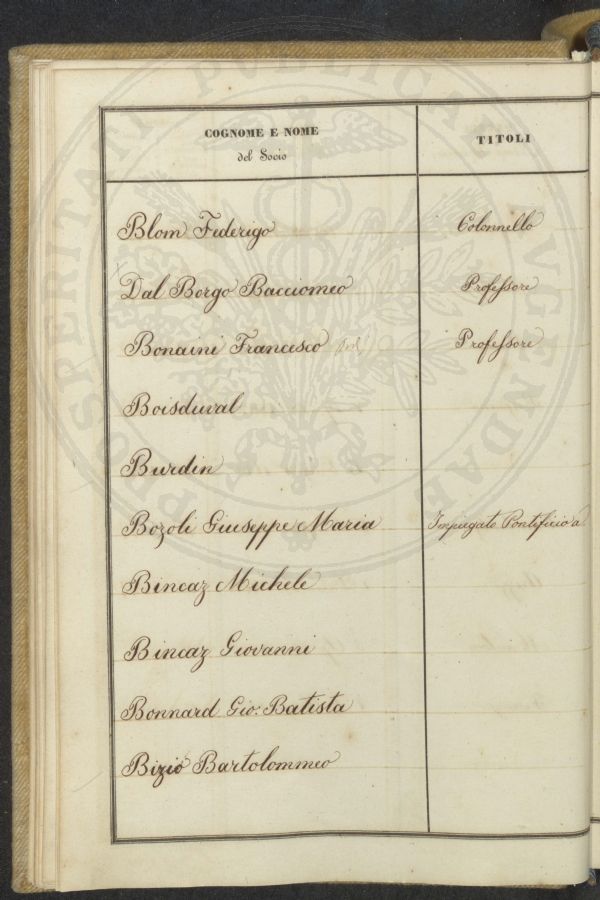 COGNOME E NOME
del Socio
TITOLI
Blom Federigo Colonnello
Dal Borgo Bacciomeo Professore
Bonaini Francesco Professore
Boisduval
Burdin
Bozoli Giuseppe Maria Impiegato Pontificio a
Bincaz Michele
Bincaz Giovanni
Bonnard Gio: Batista
Bizio Bartolommeo
PROSPERITATI PUBLICAE AVGENDAE